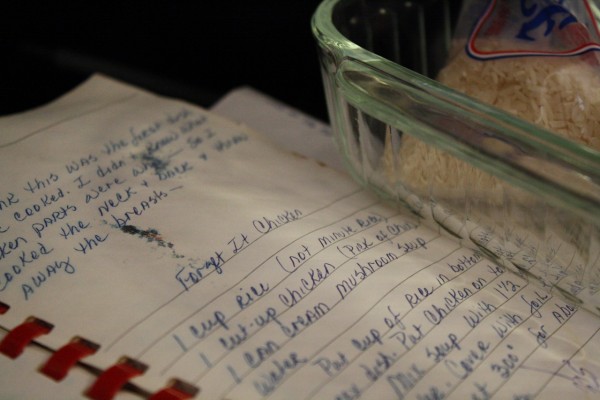 this was the first dish
cooked. I didn't know what
parts were what so I
cooked the neck & back & threw
away the breasts—
Forget It Chicken
1 cup rice (not minute rice)
1 cut-up chicken
1 can cream mushroom soup
water
Put cup of rice in bottom
dish. Put chicken on
Mix soup with 1/2
Cover with foil
300° for